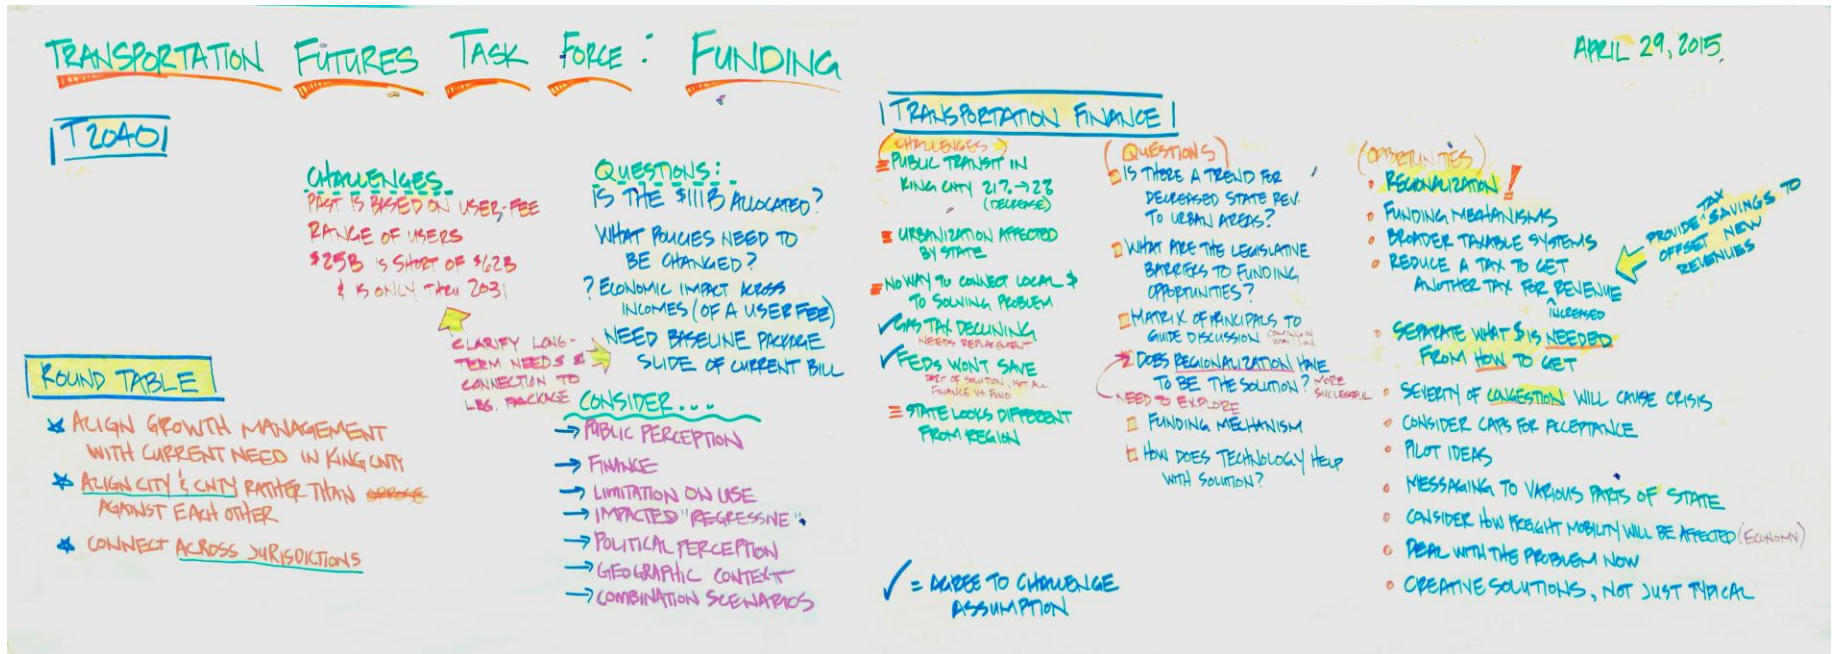 TRANSPORTATION FUTURES TASK FORCE: FUNDING
APRIL 29, 2015
T2040
CHALLENGES
PAST IS BASED ON USER-FEE
RANGE OF USERS
$25B IS SHORT OF $62B
& IS ONLY THRU 2031
QUESTIONS:
IS THE $111B ALLOCATED?
WHAT POLICIES NEED TO
BE CHANGED?
? ECONOMIC IMPACT ACROSS
INCOMES (OF A USER FEE)
NEED BASELINE PACKAGE
SLIDE OF CURRENT BILL
CLARIFY LONG-
TERM NEEDS &
CONNECTION TO
LEG. PACKAGE
CONSIDER...
→ PUBLIC PERCEPTION
→ FINANCE
→ LIMITATION ON USE
→ IMPACTED "REGRESSIVE"
→ POLITICAL PERCEPTION
→ GEOGRAPHIC CONTEXT
→ COMBINATION SCENARIOS
ROUND TABLE
ALIGN GROWTH MANAGEMENT
WITH CURRENT NEED IN KING CNTY
ALIGN CITY & CNTY RATHER THAN
AGAINST EACH OTHER
CONNECT ACROSS JURISDICTIONS
TRANSPORTATION FINANCE
(CHALLENGES)
PUBLIC TRANSIT IN
KING CNTY 21%→
(DECREASE)
URBANIZATION AFFECTED
BY STATE
NO WAY TO CONNECT LOCAL $
TO SOLVING PROBLEM
✓ GAS TAX DECLINING
NEEDS REPLACEMENT
✓ FEDS WONT SAVE
PART OF SOLUTION, NOT ALL
FINANCE VS FUND
STATE LOOKS DIFFERENT
FROM REGION
✓ = AGREE TO CHALLENGE
ASSUMPTION
(QUESTIONS)
IS THERE A TREND FOR
DECREASED STATE REV.
TO URBAN AREAS?
WHAT ARE THE LEGISLATIVE
BARRIERS TO FUNDING
OPPORTUNITIES?
MATRIX OF PRINCIPALS TO
GUIDE DISCUSSION
DOES REGIONALIZATION HAVE
TO BE THE SOLUTION? MORE
SUCCESSFUL
NEED TO EXPLORE
FUNDING MECHANISM
HOW DOES TECHNOLOGY HELP
WITH SOLUTION?
(OPPORTUNITIES)
REGIONALIZATION!
FUNDING MECHANISMS
BROADER TAXABLE SYSTEMS
REDUCE A TAX TO GET
ANOTHER TAX FOR REVENUE
INCREASED
PROVIDE TAX SAVINGS TO
OFFSET NEW
REVENUES
SEPARATE WHAT $ IS NEEDED
FROM HOW TO GET
SEVERITY OF CONGESTION WILL CAUSE CRISIS
CONSIDER CAPS FOR ACCEPTANCE
PILOT IDEAS
MESSAGING TO VARIOUS PARTS OF STATE
CONSIDER HOW FREIGHT MOBILITY WILL BE AFFECTED (ECONOMY)
DEAL WITH THE PROBLEM NOW
CREATIVE SOLUTIONS, NOT JUST TYPICAL